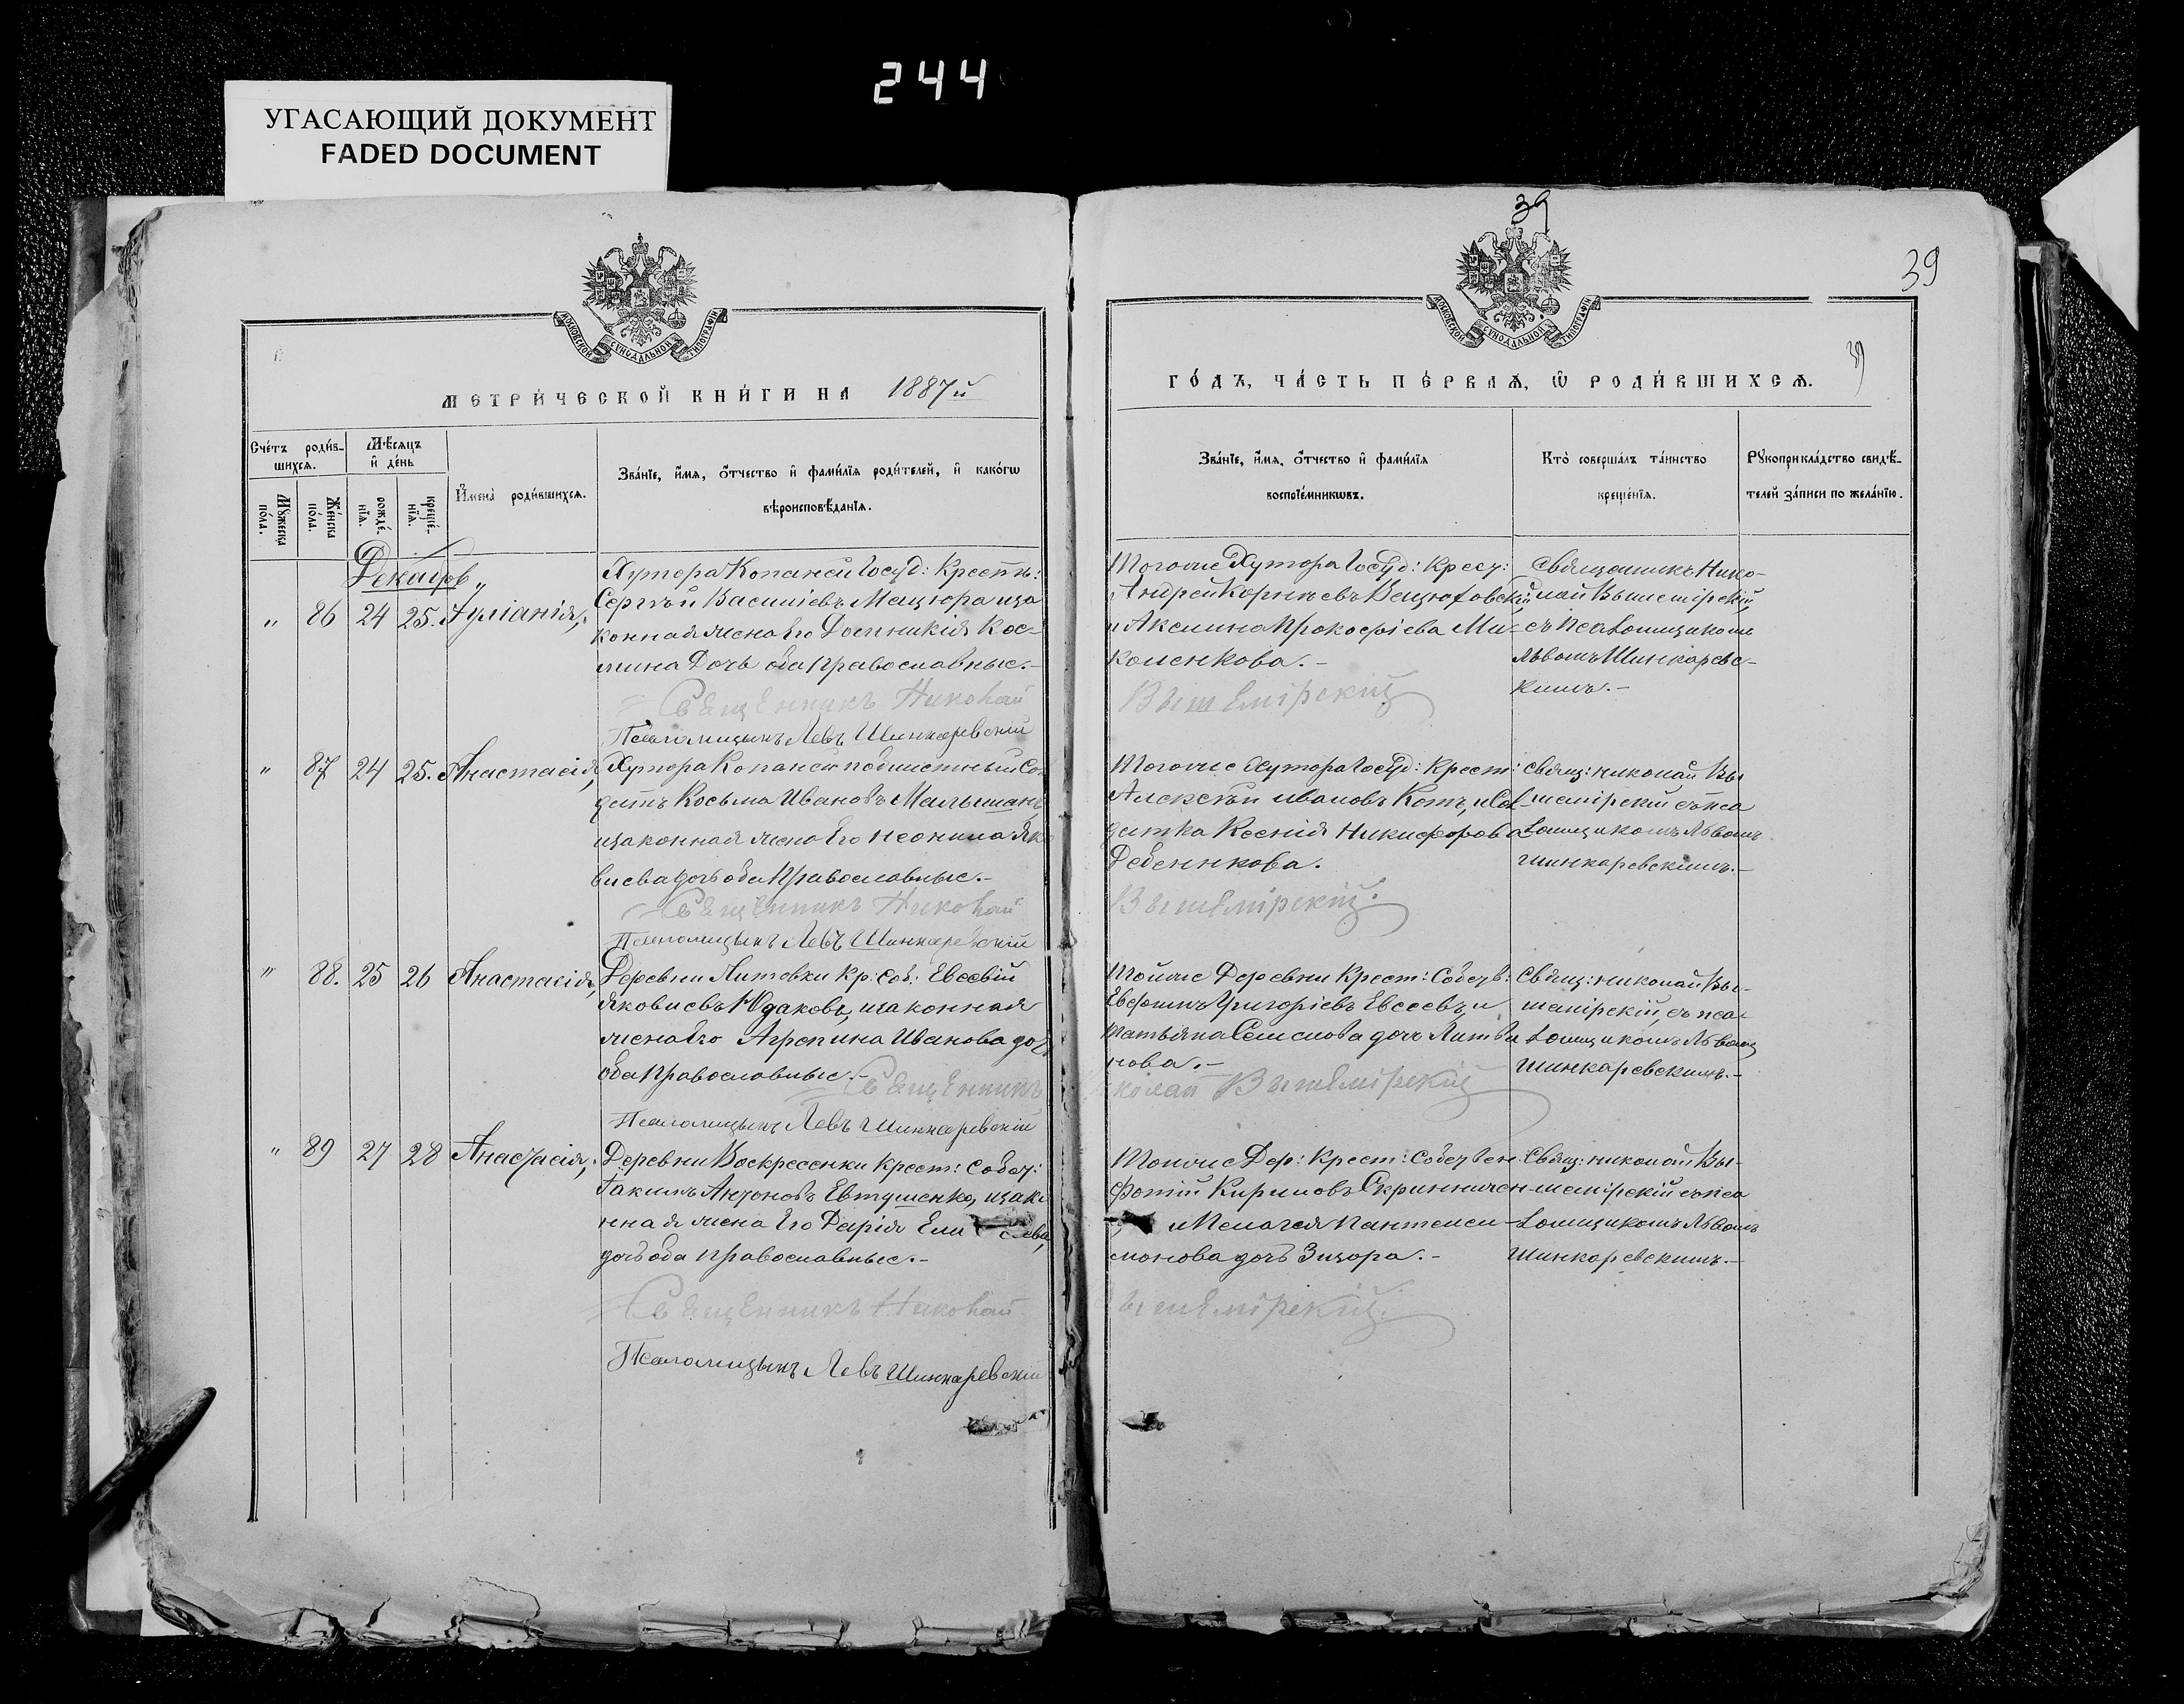 244
УГАСАЮЩИЙ ДОКУМЕНТ
FADED DOCUMENT
39
39
39
МОСКОВСКОЙ СѴНОДАЛЬНОЙ ТИПОГРАФІИ
МОСКОВСКОЙ СѴНОДАЛЬНОЙ ТИПОГРАФІИ
МЕТРИ́ЧЕСКОЙ КНИ́ГИ НА 1887й
ГО́ДЪ, ЧА́СТЬ ПЕ́РВАѦ, Ѡ҆ РОДИ́ВШИХСѦ.
Сче́тъ роди́в-
шихсѧ.
Мꙋ́жеска по́ла.
Же́нска по́ла.
Мѣ́сѧцъ
и҆ де́нь
рожде́-нїѧ.
креще́-нїѧ.
И҆мена̀ роди́вшихсѧ.
Зва́нїе, и҆́мѧ, ѻ҆́тчество и҆ фами́лїѧ роди́телей, и҆ како́гѡ
вѣроисповѣ́данїѧ.
Зва́нїе, и҆́мѧ, ѻ҆́тчество и҆ фами́лїѧ
воспрїе́мникѡвъ.
Кто̀ соверша́лъ та́инство
креще́нїѧ.
Рꙋкоприкла́дство свидѣ́-
телей за́писи по жела́нїю.
Декабрь
„ 86 24 25. Іуліанія,
Хутора Копаней Госуд: Крестьн:
Сергѣй Василіевъ Мацюра иза
конная жена Его Домникія Кос-
мина Дочь оба православные.-
Священникъ Николай
Псаломщикъ Левъ Шинкаревскій
Тогоже Хутора Госуд: Крест:
Андрей Корнѣевъ
и Аксинна Прокофіева Ми-
коленкова.-
Вышемірскій
Священникъ Нико-
лай Вышемірскій
съ псаломщикомъ
Львомъ Шинкаревс-
кимъ.-
„ 87 24 25. Анастасія,
Хутора Копаней Сол
датъ Косьма Ивановъ Малышанъ
изаконная жена Его Неонила Яко
влева дочь оба православные.-
Священникъ Николай
Псаломщикъ Левъ Шинкаревскій
Тогоже Хутора Госуд: Крест:
Алексѣй Ивановъ Котъ, и Сол
датка Ксенія Никифорова
Дебенкова.
Вышемірскій.
Свящ: Николай Вы
шемірскій съ пса
ломщикомъ Львомъ
Шинкаревскимъ.-
„ 88. 25 26 Анастасія,
Деревни Литовки Кр: Соб: Евсевій
Яковлевъ Юдаковъ, изаконная
жена Его Агрепина Иванова доч
оба православные.-
Священникъ Николай Вышемірскій
Псаломщикъ Левъ Шинкаревскій
Тойже Деревни Крест: Собств:
Евфимъ Григоріевъ Евсеевъ, и
Татьяна Семенова дочь Литви
нова.-
Свящ: Николай Вы-
шемірскій, съ пса-
ломщикомъ Львомъ
Шинкаревскимъ.-
„ 89 27 28 Анастасія,
Деревни Воскресенки Крест: Собст:
Іакимъ Антоновъ Евтушенко, изако
нная жена Его Дарія
дочь оба православные.-
Священникъ Николай
Псаломщикъ Левъ Шинкаревскій
Тойже Дер: Крест: Собствен
Фотій Кириловъ Скриннчен-
и Пелагея Пантелеи-
монова дочь Зизора.-
Вышемірскій.
Свящ: Николай Вы-
шемірскій съ пса
ломщикомъ Львомъ
Шинкаревскимъ.-